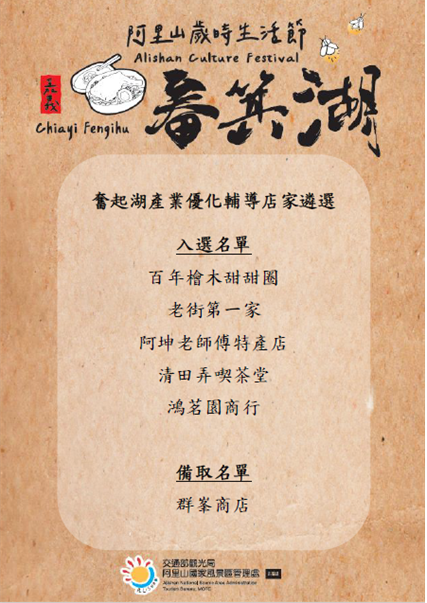 阿里山歲時生活節
Alishan Culture Festival
嘉義
Chiayi Fengihu
畚箕湖
奮起湖產業優化輔導店家遴選
入選名單
百年檜木甜甜圈
老街第一家
阿坤老師傅特產店
清田弄喫茶堂
鴻茗園商行
備取名單
群峯商店
交通部觀光局
阿里山國家風景區管理處
Alishan National Scenic Area Administration
Tourism Bureau, MOTC